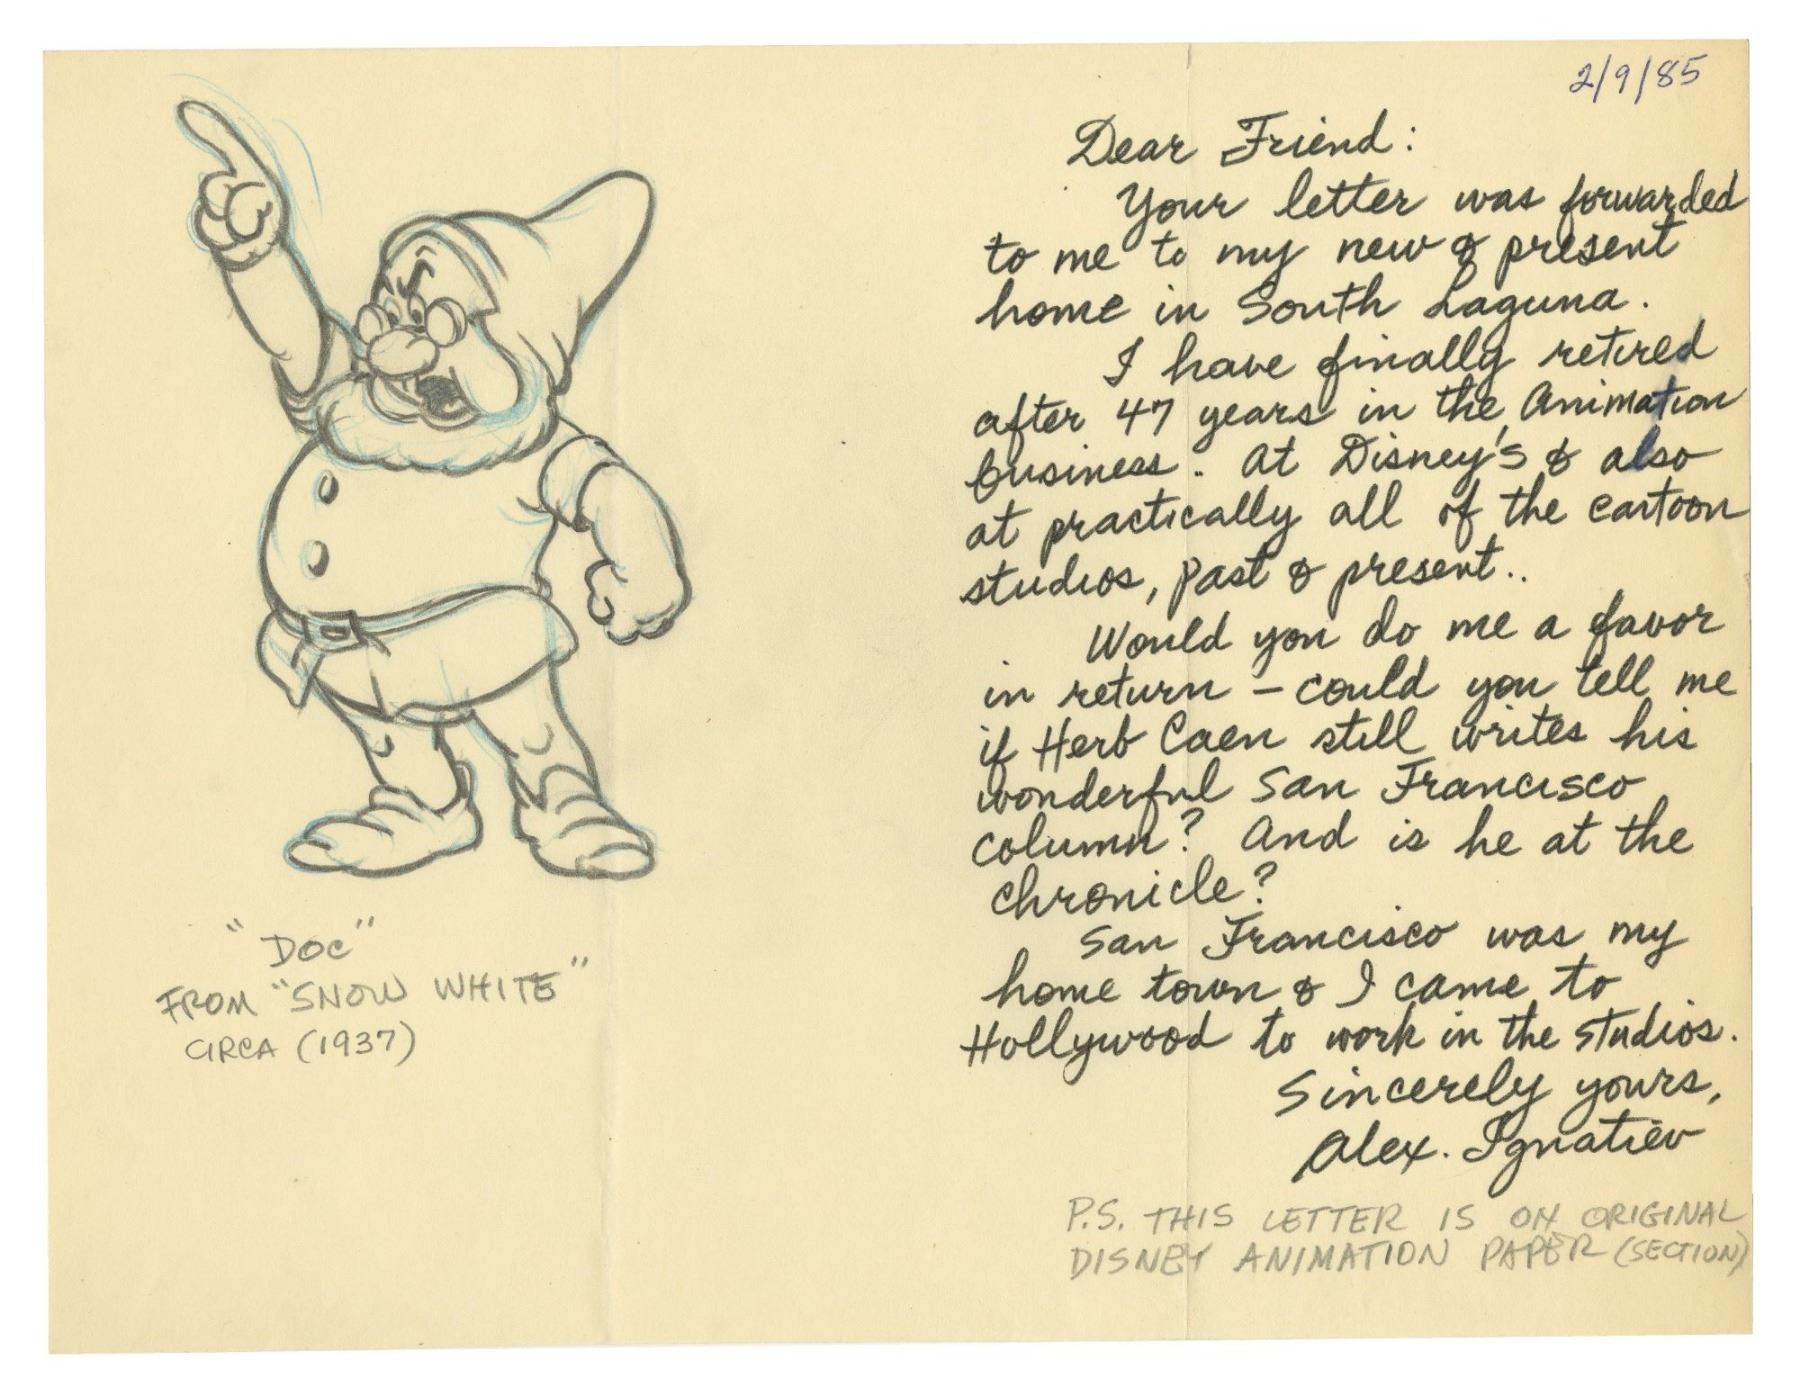 2/9/85
Dear Friend:
Your letter was forwarded
to me to my new & present
home in South Laguna.
I have finally retired
after 47 years in the Animation
business. At Disney's & also
at practically all of the cartoon
studios, past & present..
Would you do me a favor
in return – could you tell me
if Herb Caen still writes his
wonderful San Francisco
column? And is he at the
Chronicle?
San Francisco was my
home town & I came to
Hollywood to work in the studios.
Sincerely yours,
Alex. Ignatiev
P.S. THIS LETTER IS ON ORIGINAL
DISNEY ANIMATION PAPER (SECTION)
"DOC"
FROM "SNOW WHITE"
CIRCA (1937)